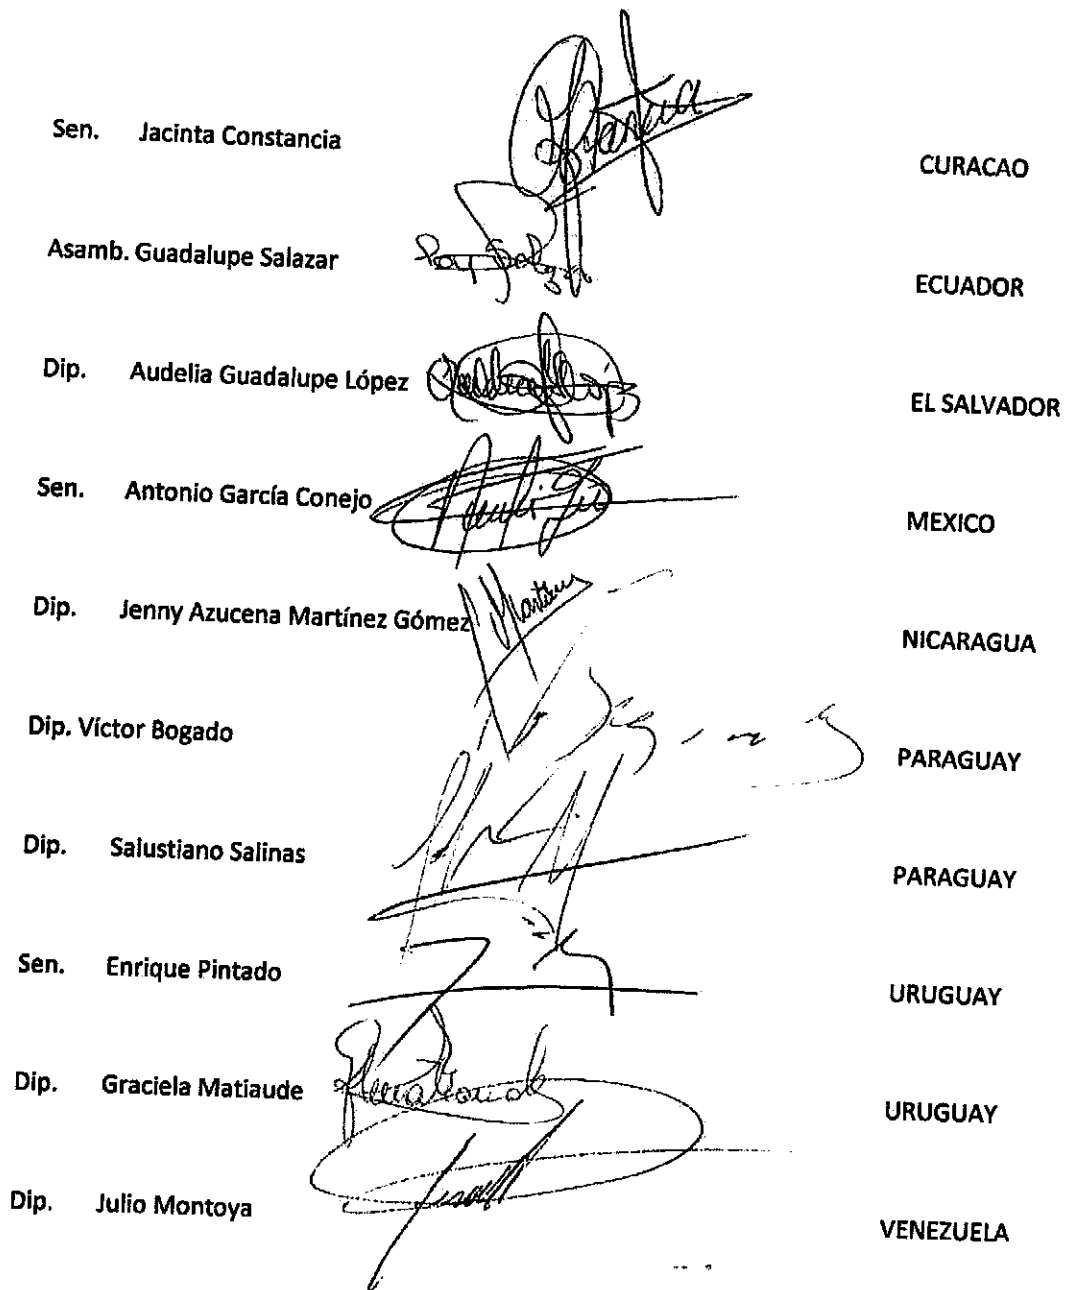 Sen. Jacinta Constancia CURACAO
Asamb. Guadalupe Salazar ECUADOR
Dip. Audelia Guadalupe López EL SALVADOR
Sen. Antonio García Conejo MEXICO
Dip. Jenny Azucena Martínez Gómez NICARAGUA
Dip. Víctor Bogado PARAGUAY
Dip. Salustiano Salinas PARAGUAY
Sen. Enrique Pintado URUGUAY
Dip. Graciela Matiaude URUGUAY
Dip. Julio Montoya VENEZUELA